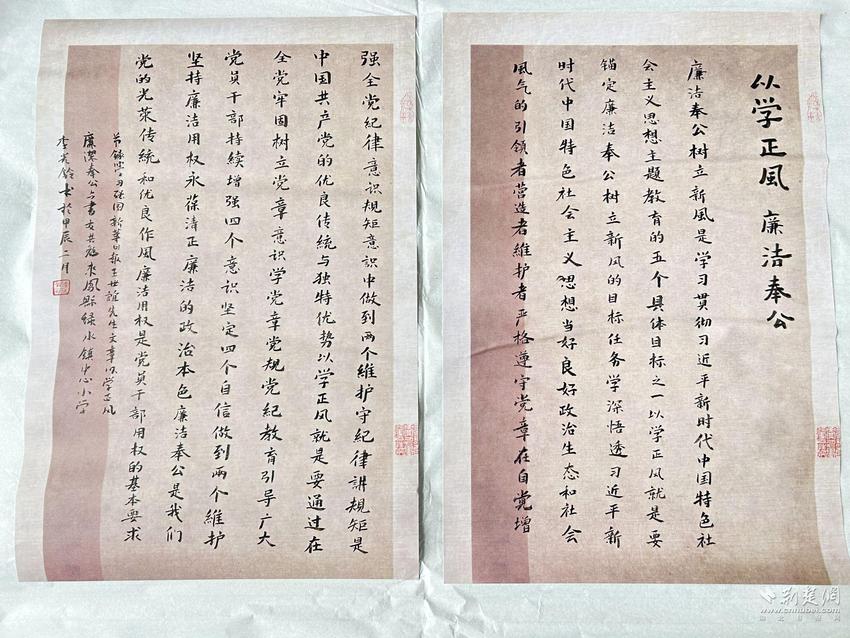 以学正风 廉洁奉公
廉洁奉公树立新風是学习贯彻习近平新时代中国特色社
会主义思想主题教育的五个具体目标之一以学正风就是要
锚定廉洁奉公树立新风的目标任务学深悟透习近平新
时代中国特色社会主义思想当好良好政治生态和社会
風气的引领者营造者維护者严格遵守党章在自觉增
强全党纪律意识规矩意识中做到两个維护守纪律讲规矩是
中国共产党的优良传统与独特优势以学正风就是要通过在
全党牢固树立党章意识学党章党规党纪教育引导广大
党员干部持续增强四个意识坚定四个自信做到两个維护
坚持廉洁用权永葆清正廉洁的政治本色廉洁奉公是我们
党的光荣传統和优良作風廉洁用权是党员干部用权的基本要求
节錄学习强国新华日报王世谊先生文章以学正风
廉潔奉公今書与共勉来鳳縣绿水鎮中心小学
李 书於甲辰二月
荆楚網
www.cnhubei.com
湖北日报网